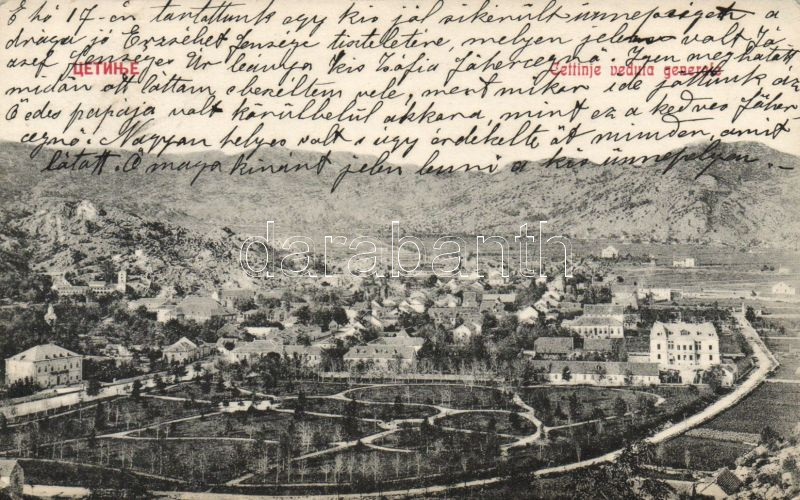 E hó 17-én tartottunk egy kis jól sikerült ünnepséget, a
drága jó Erzsébet hercege tiszteletére, melyen jelen volt Jó-
zsef Herczeg Úr leánya kis Zsófia Főhercegnő. Igen meghatott
ЦЕТИЊЕ
Cettinje veduta generale
midőn ott láttam, s beszéltem vele, mert mikor ide jöttünk az
Ő édes papája volt körülbelül akkora, mint ez a kedves Főher-
cegnő. Nagyon helyes volt s úgy érdekelte őt minden, amit
látott. Ő maga kivánt jelen lenni a kis ünnepélyen.
darabanth